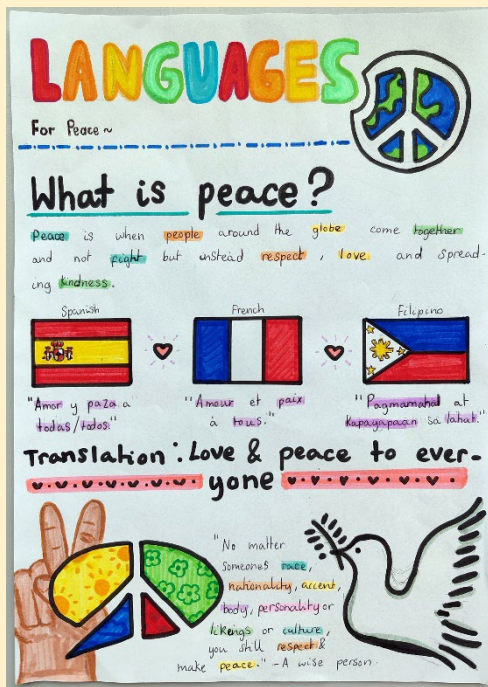 LANGUAGES
For Peace~
What is peace?
Peace is when people around the globe come together
and not fight but instead respect, love and spread-
ing kindness.
Spanish
French
Filipino
"Amor y paza a
todas/todos."
"Amour et paix
à tous."
"Pagmamahal at
Kapayapaan sa lahat."
Translation: Love & peace to ever-
yone
"No matter
someones race,
nationality, accent,
body, personality or
likengs or culture,
you still respect &
make peace." -A wise person.